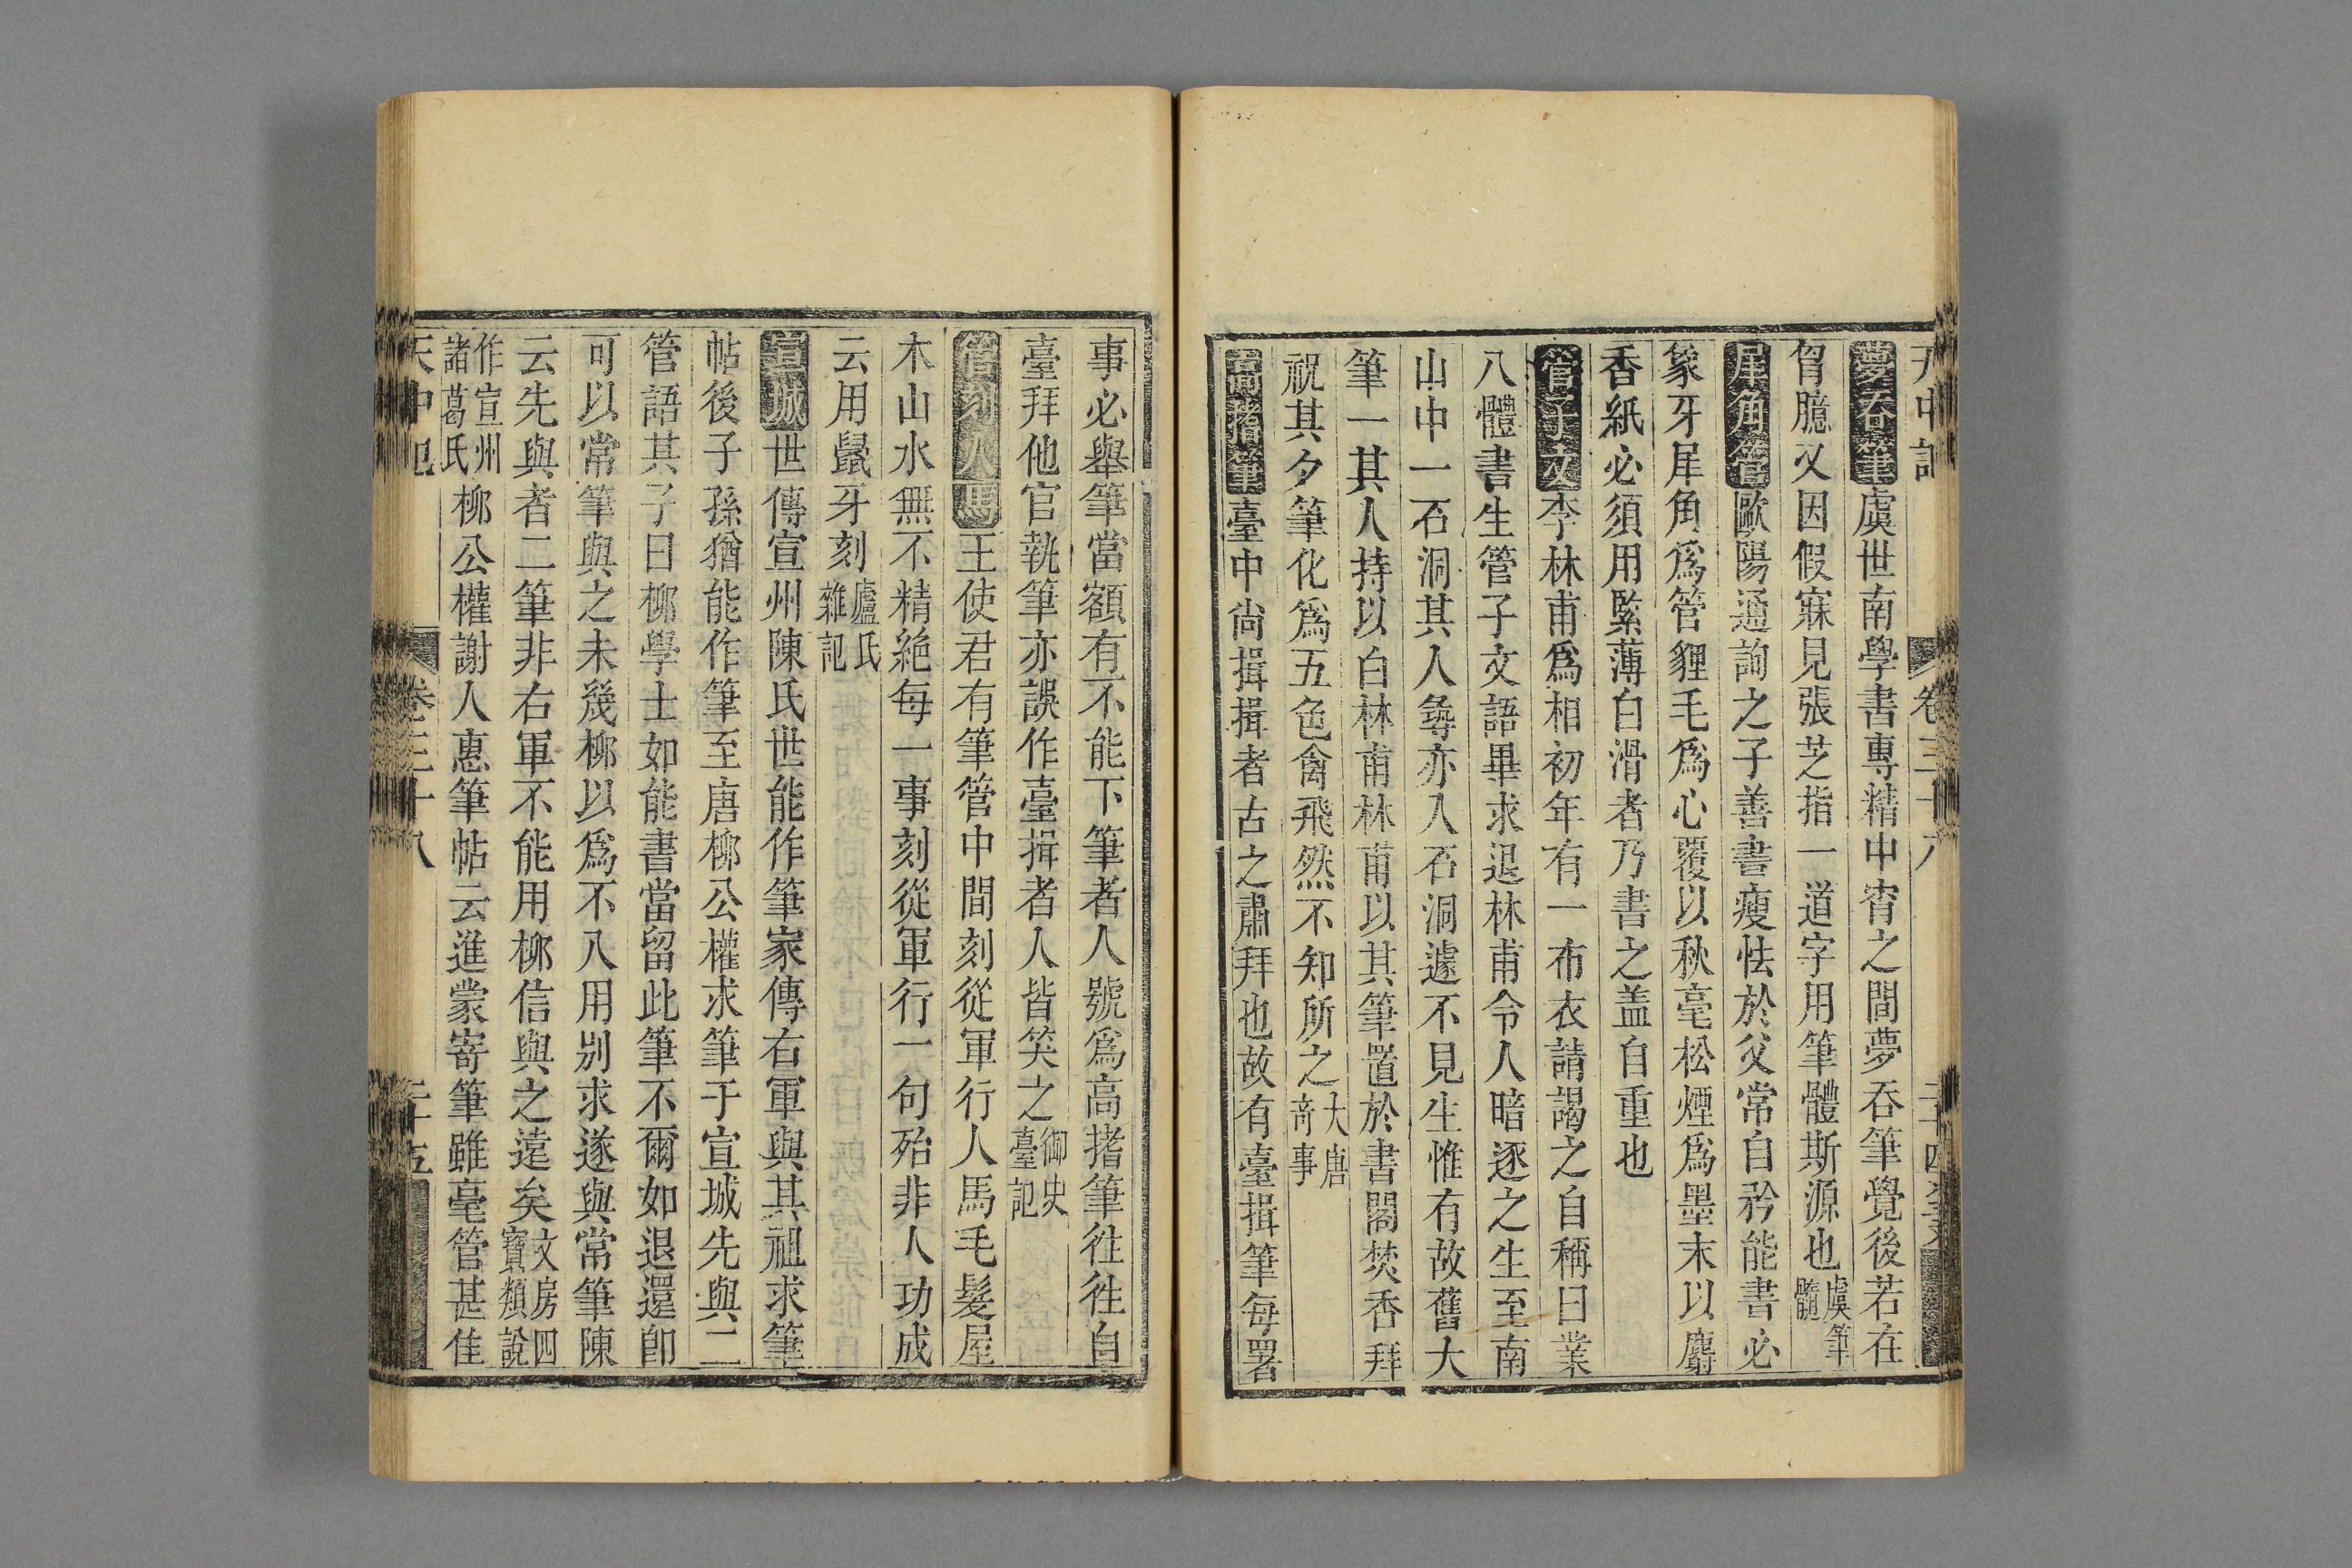 天中記 卷三十八 二十四
夢吞筆虞世南學書專精中宵之間夢吞筆覺後若在
胷臆又因假寐見張芝指一道字用筆體斯源也虞筆髓
犀角管歐陽通詢之子善書瘦怯於父常自矜能書必
象牙犀角爲管貍毛爲心覆以秋毫松煙爲墨末以麝
香紙必須用緊薄白滑者乃書之盖自重也
管子文李林甫爲相初年有一布衣請謁之自稱曰業
八體書生管子文語畢求退林甫令人暗逐之生至南
山中一石洞其人尋亦入石洞遽不見生惟有故舊大
筆一其人持以白林甫林甫以其筆置於書閣焚香拜
祝其夕筆化爲五色禽飛然不知所之大唐竒事
高揩筆臺中尚揖揖者古之肅拜也故有臺揖筆每署
事必舉筆當額有不能下筆者人號爲高揩筆徃徃自
臺拜他官執筆亦誤作臺揖者人皆笑之御史臺記
管刻人馬王使君有筆管中間刻從軍行人馬毛髮屋
木山水無不精絶每一事刻從軍行一句殆非人功成
云用鼠牙刻盧氏雜記
宣城世傳宣州陳氏世能作筆家傳右軍與其祖求筆
帖後子孫猶能作筆至唐柳公權求筆于宣城先與二
管語其子曰柳學士如能書當留此筆不爾如退還卽
可以常筆與之未㡬柳以爲不入用别求遂與常筆陳
云先與者二筆非右軍不能用柳信與之遠矣文房四寶類說
作宣州諸葛氏柳公權謝人惠筆帖云進蒙寄筆雖毫管甚佳
天中記 卷三十八 二十五